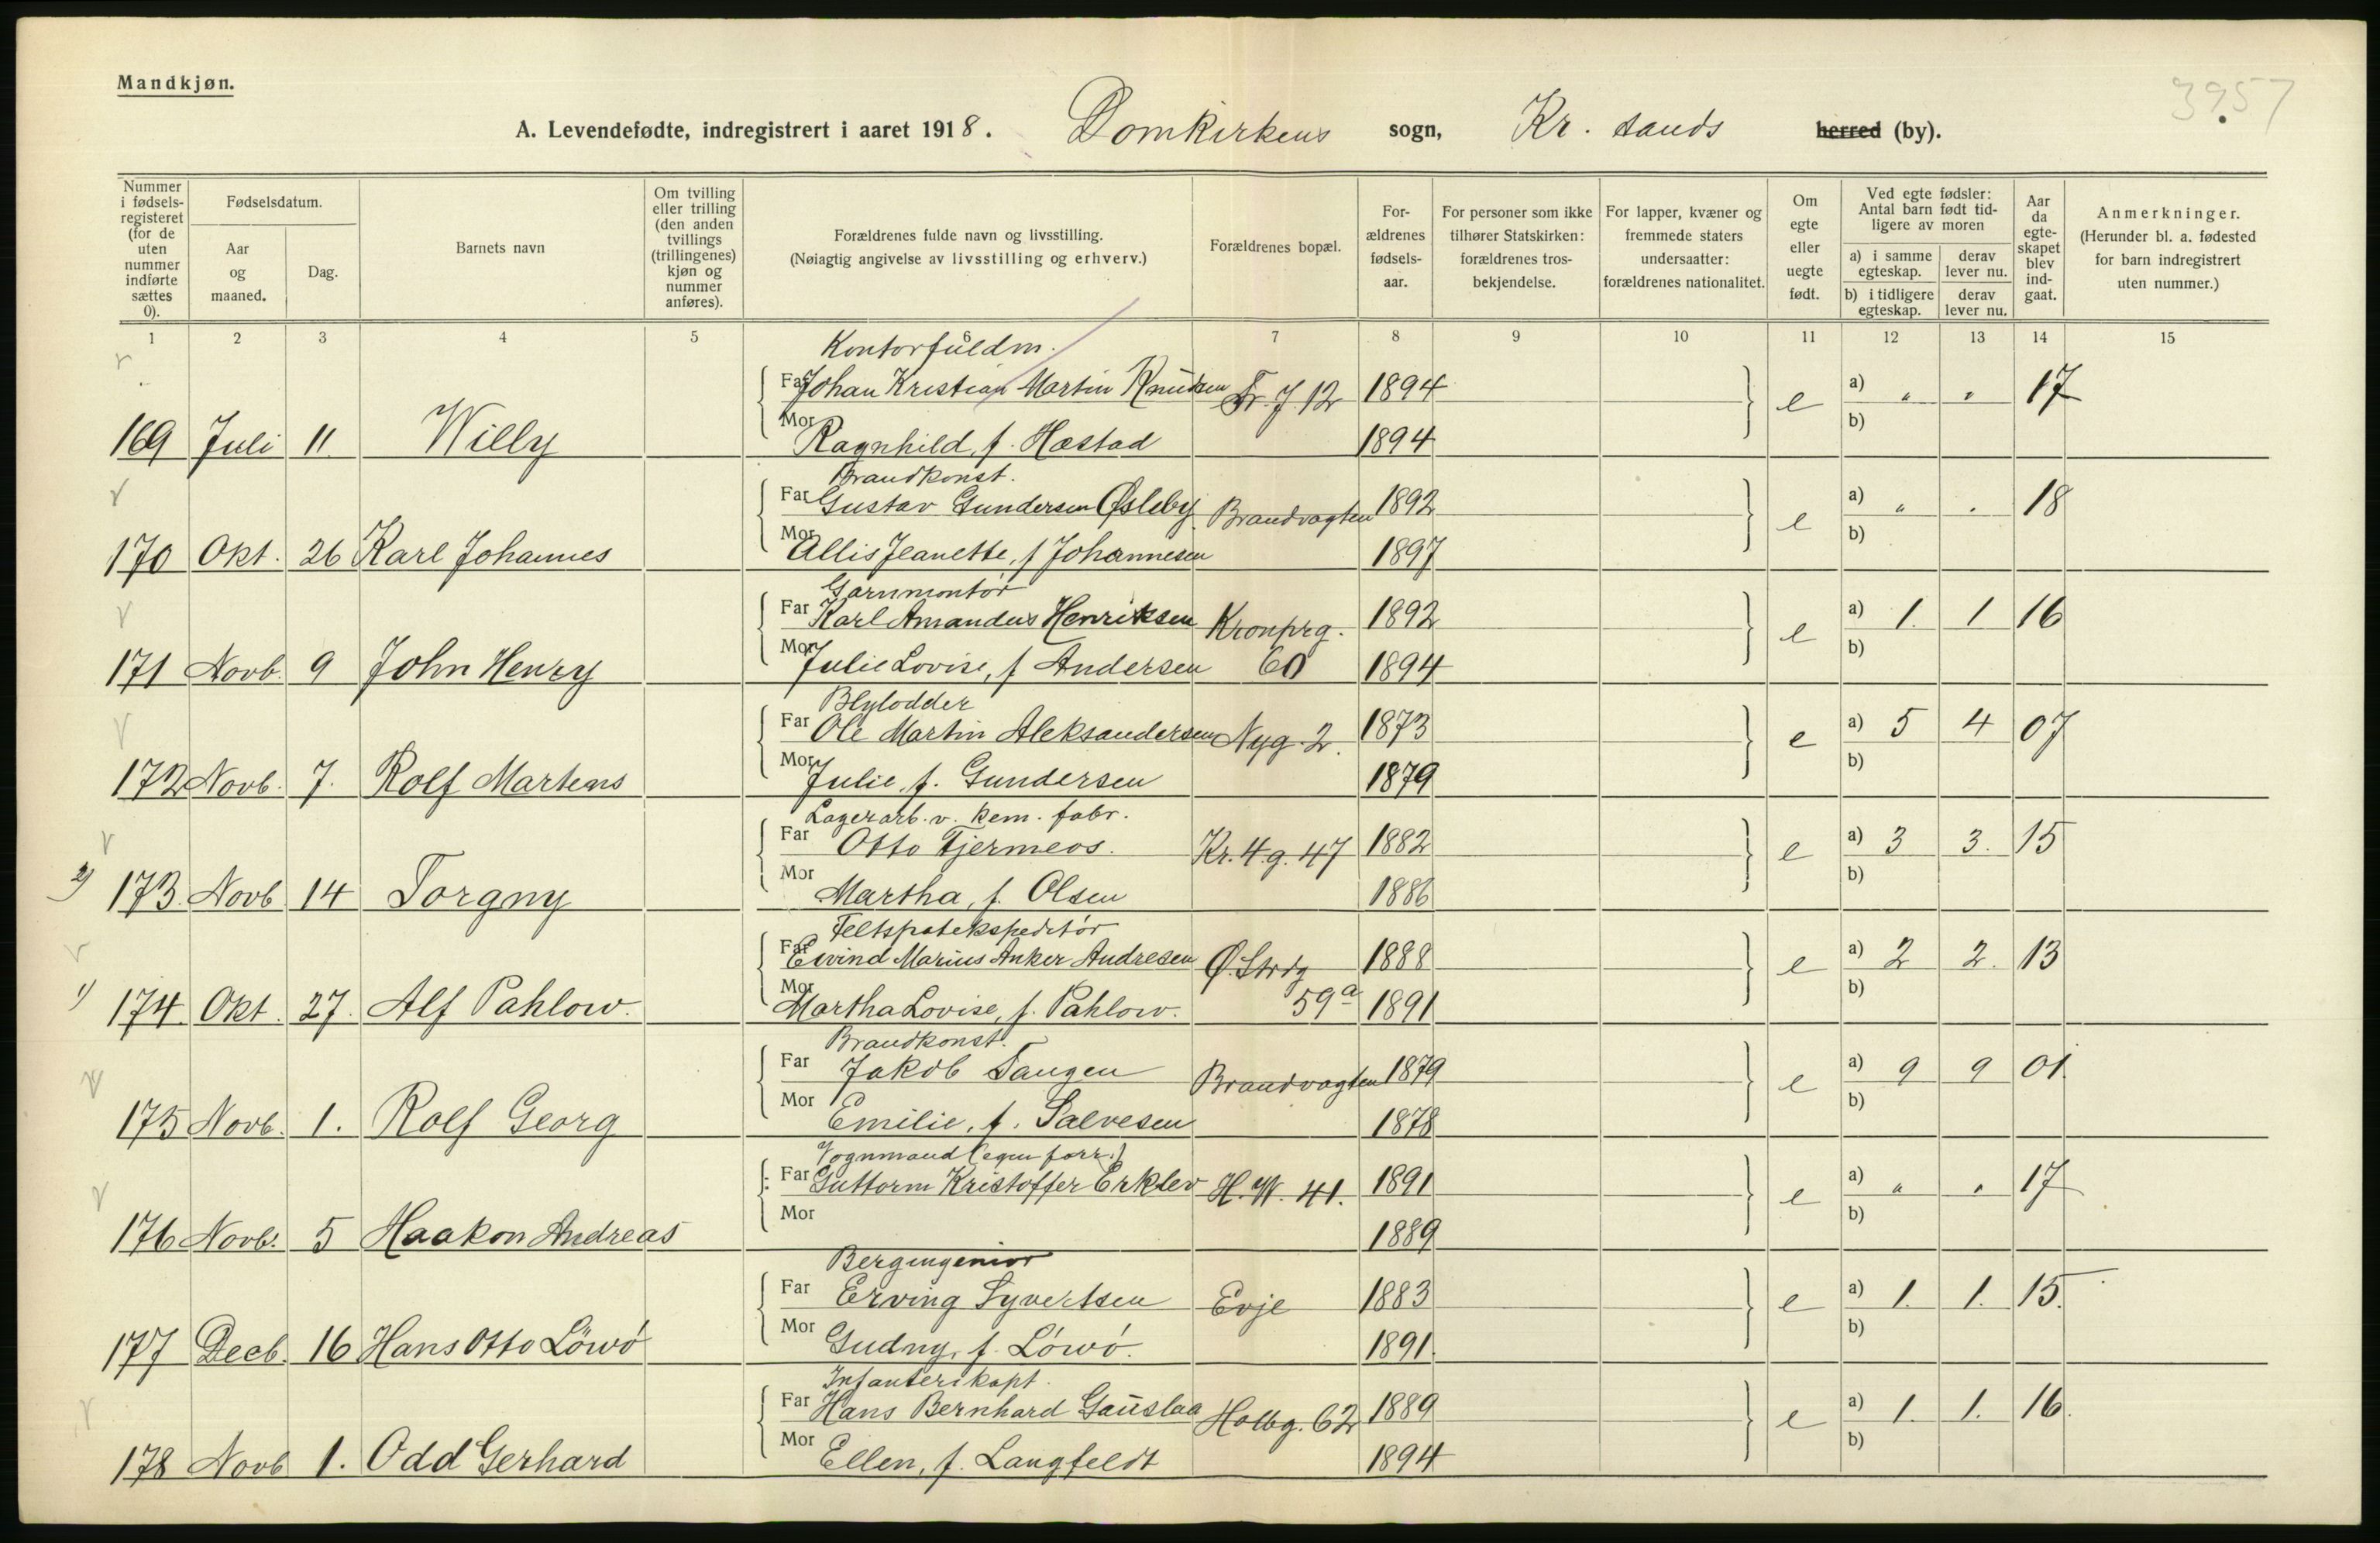 Mandkjøn.
3957
A. Levendefødte, indregistrert i aaret 1918. Domkirkens sogn, Kr. sands herred (by).
Nummer i fødsels-registeret (for de uten nummer indførte sættes 0).
Fødselsdatum.
Aar og maaned.
Dag.
Barnets navn
Om tvilling eller trilling (den anden tvillings (trillingenes) kjøn og nummer anføres).
Forældrenes fulde navn og livsstilling. (Nøiagtig angivelse av livsstilling og erhverv.)
Forældrenes bopæl.
For-ældrenes fødsels-aar.
For personer som ikke tilhører Statskirken: forældrenes tros-bekjendelse.
For lapper, kvæner og fremmede staters undersaatter: forældrenes nationalitet.
Om egte eller uegte født.
Ved egte fødsler: Antal barn født tid-ligere av moren
a) i samme egteskap.
derav lever nu.
b) i tidligere egteskap.
derav lever nu.
Aar da egte-skapet blev ind-gaat.
Anmerkninger. (Herunder bl. a. fødested for barn indregistrert uten nummer.)
1 2 3 4 5 6 7 8 9 10 11 12 13 14 15
Kontorfuldm.
Far Johan Kristian Martin Knudsen Fr. J. 12 1894 e a) " " 17
169 Juli 11. Willy Mor Ragnhild, f. Hæstad 1894 b)
Brandkonst.
Far Gustav Gundersen Øsleby Brandvagten 1892 e a) " . 18
170 Okt. 26 Karl Johannes Mor Allis Jeanette, f Johannesen 1897 b)
Garnmontör
Far Karl Amandus Henriksen Kronprg. 1892 e a) 1. 1 16
171 Novb. 9 John Henry Mor Julie Lovise, f Andersen 60 1894 b)
Blylodder
Far Ole Martin Aleksandersen Nyg. 2. 1873 e a) 5 4 07
172 Novb. 7. Rolf Martens Mor Julie, f. Gundersen 1879 b)
Lagerarb. v. kem. fabr.
Far Otto Tjermeos. Kr. 4. g. 47 1882 e a) 3 3. 15
2) 173. Novb 14 Torgny Mor Martha, f. Olsen 1886 b)
Feltspatekspeditör
Far Eivind Marius Anker Andresen Ø. Strdg 1888 e a) 2 2. 13
1) 174. Okt. 27. Alf Pahlow. Mor Martha Lovise, f. Pahlow. 59a 1891 b)
Brandkonst.
Far Jakob Tangen Brandvagten 1879 e a) 9 9 01.
175 Novb. 1. Rolf Georg Mor Emilie, f. Salvesen 1878 b)
Vognmand (egen forr.)
Far Guttorm Kristoffer Erklev H. W. 41. 1891 e a) " " 17
176 Novb. 5 Haakon Andreas Mor 1889 b)
Bergingeniør
Far Erving Syvertsen Evje 1883 e a) 1. 1. 15.
177 Decb. 16 Hans Otto Löwö Mor Gudny, f. Löwö. 1891. b)
Infanterikapt.
Far Hans Bernhard Gauslaa Holbg. 62 1889 e a) 1. 1. 16.
178 Novb 1. Odd Gerhard Mor Ellen, f. Langfeldt 1894 b)